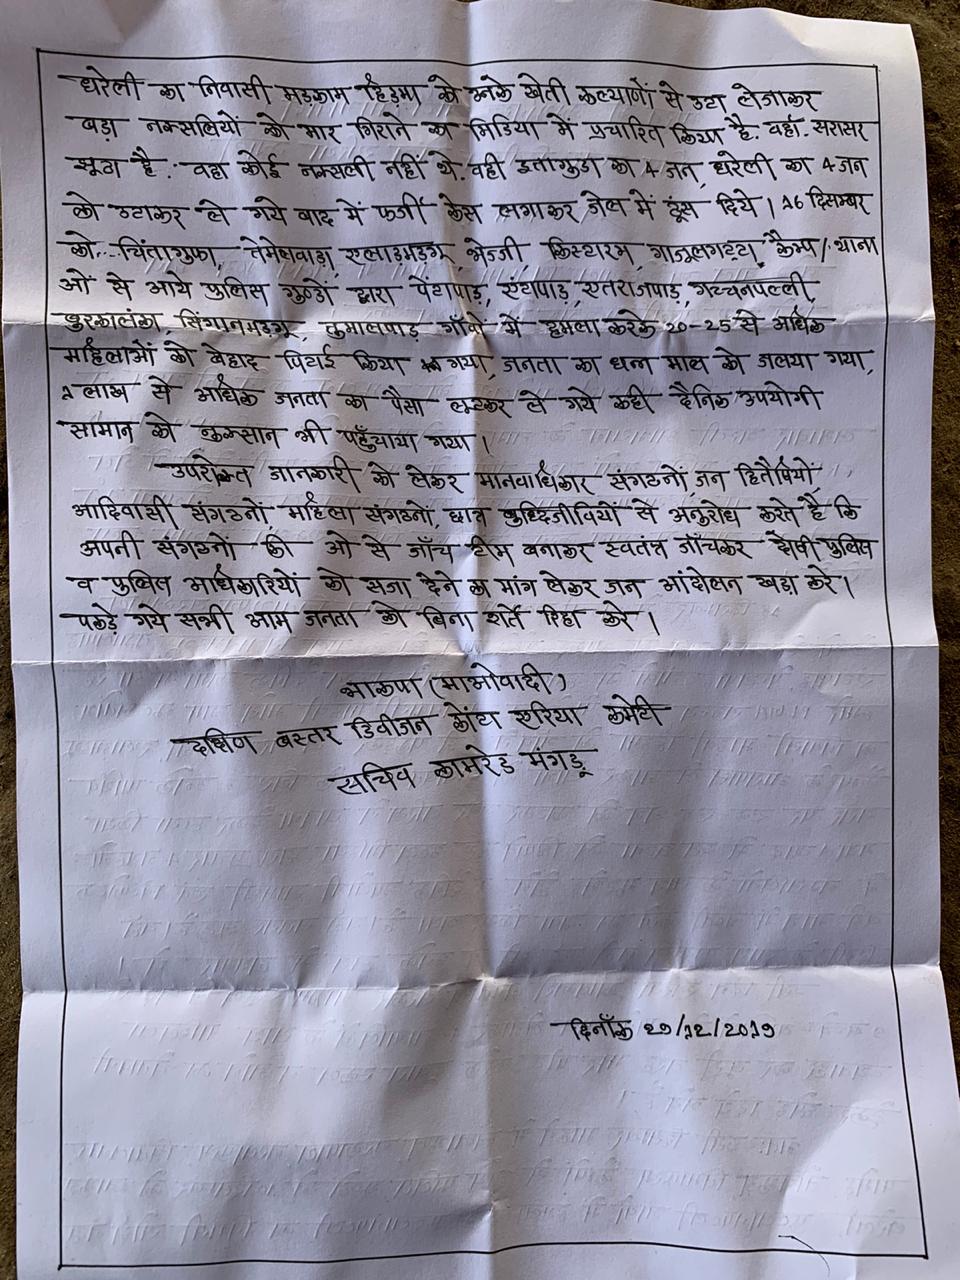 धरेली का निवासी मड़काम हिड़मा को उनके खेती कल्याणों से उठा लेजाकर
बड़ा नक्सलियों को मार गिराने का मिडिया में प्रचारित किया है. वहां. सरासर
झूठा है. वहा कोई नक्सली नहीं थे. वही इतागुडा का 4 जन, धरेली का 4 जन
को उठाकर ले गये बाद में फर्जी केस लगाकर जेल में ठूंस दिये। 16 दिसम्बर
को... चिंतागुफा, तेमेलवाड़ा, एलाड़मड़गू, भेज्जी, किस्टारम, गाजुलगट्टा, कैम्प/थाना
ओं से आये पुलिस गुण्डों द्वारा पेंटापाड़, एंटापाड़, एतराजपाड़, गच्चनपल्ली,
बुरकालंका, सिंगानमड़गू, तुमालपाड़ गाँवों में हमला करके 20-25 से अधिक
महिलाओं को बेहाद पिटाई किया गया, जनता का धान माल को जलया गया,
2 लाख से अधिक जनता का पैसा लूटकर ले गये कही दैनिक उपयोगी
सामान को नुकसान भी पहुँचाया गया।
उपरोक्त जानकारी को लेकर मानवाधिकार संगठनों, जन हितैषियों,
आदिवासी संगठनों, महिला संगठनों, छात्र बुध्दिजीवियों से अनुरोध करते है कि
अपनी संगठनों की ओ से जाँच टीम बनाकर स्वतंत्र जाँचकर दोषी पुलिस
व पुलिस अधिकारियों को सजा देने का मांग लेकर जन आंदोलन खड़ा करे।
पकड़े गये सभी आम जनता को बिना शर्त रिहा करे।
भाकपा (माओवादी)
दक्षिण बस्तर डिवीजन कोंटा एरिया कमेटी
सचिव कामरेड मंगड़ू
दिनाँक 29/12/2019